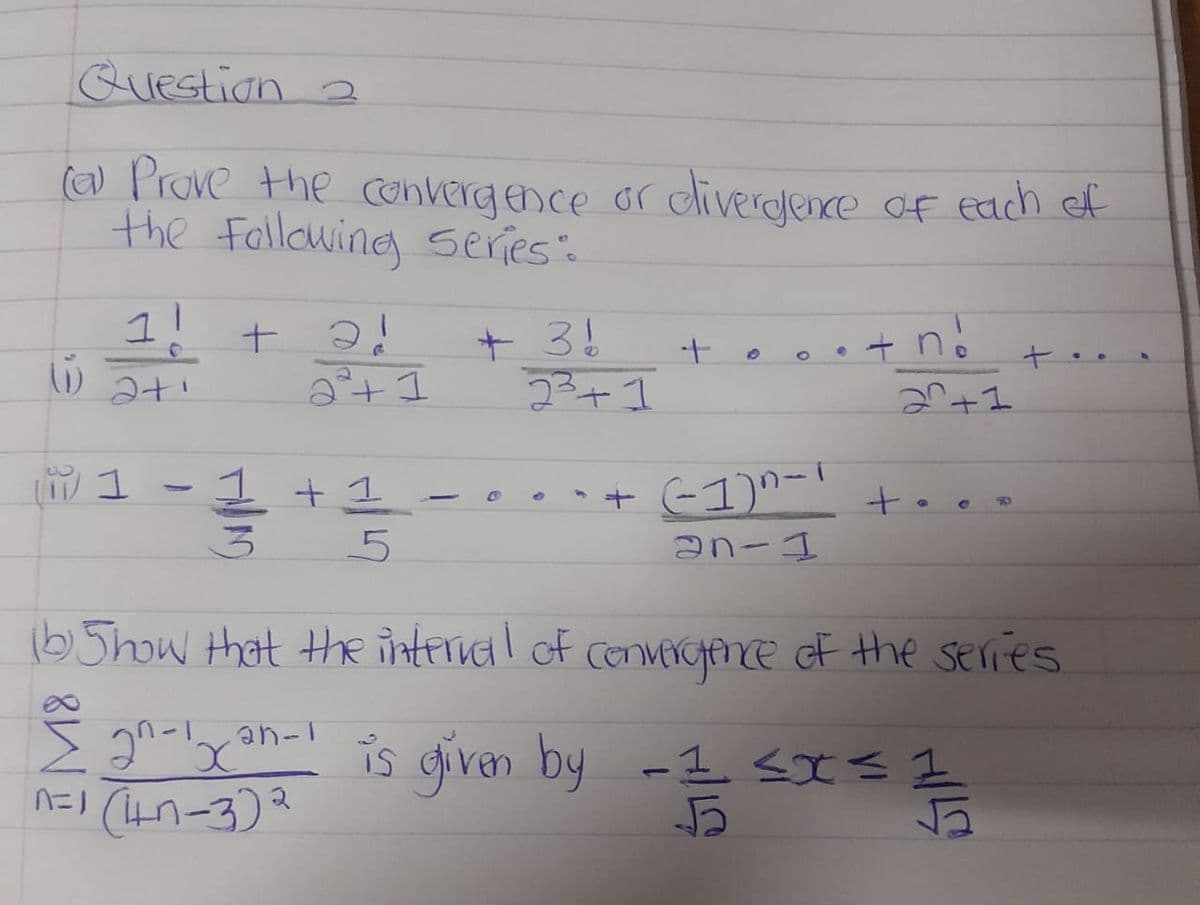 Question 2
(a) Prove the convergence or divergence of each of
the following series:
(i) 1!/2+1 + 2!/2²+1 + 3!/2³+1 + .... + n!/2ⁿ+1 + ....
(ii) 1 - 1/3 + 1/5 - .... + (-1)ⁿ⁻¹/2n-1 + ....
(b) Show that the interval of convergence of the series
∞
Σ 2ⁿ⁻¹x²ⁿ⁻¹/(4n-3)² is given by -1/√2 ≤ x ≤ 1/√2
n=1